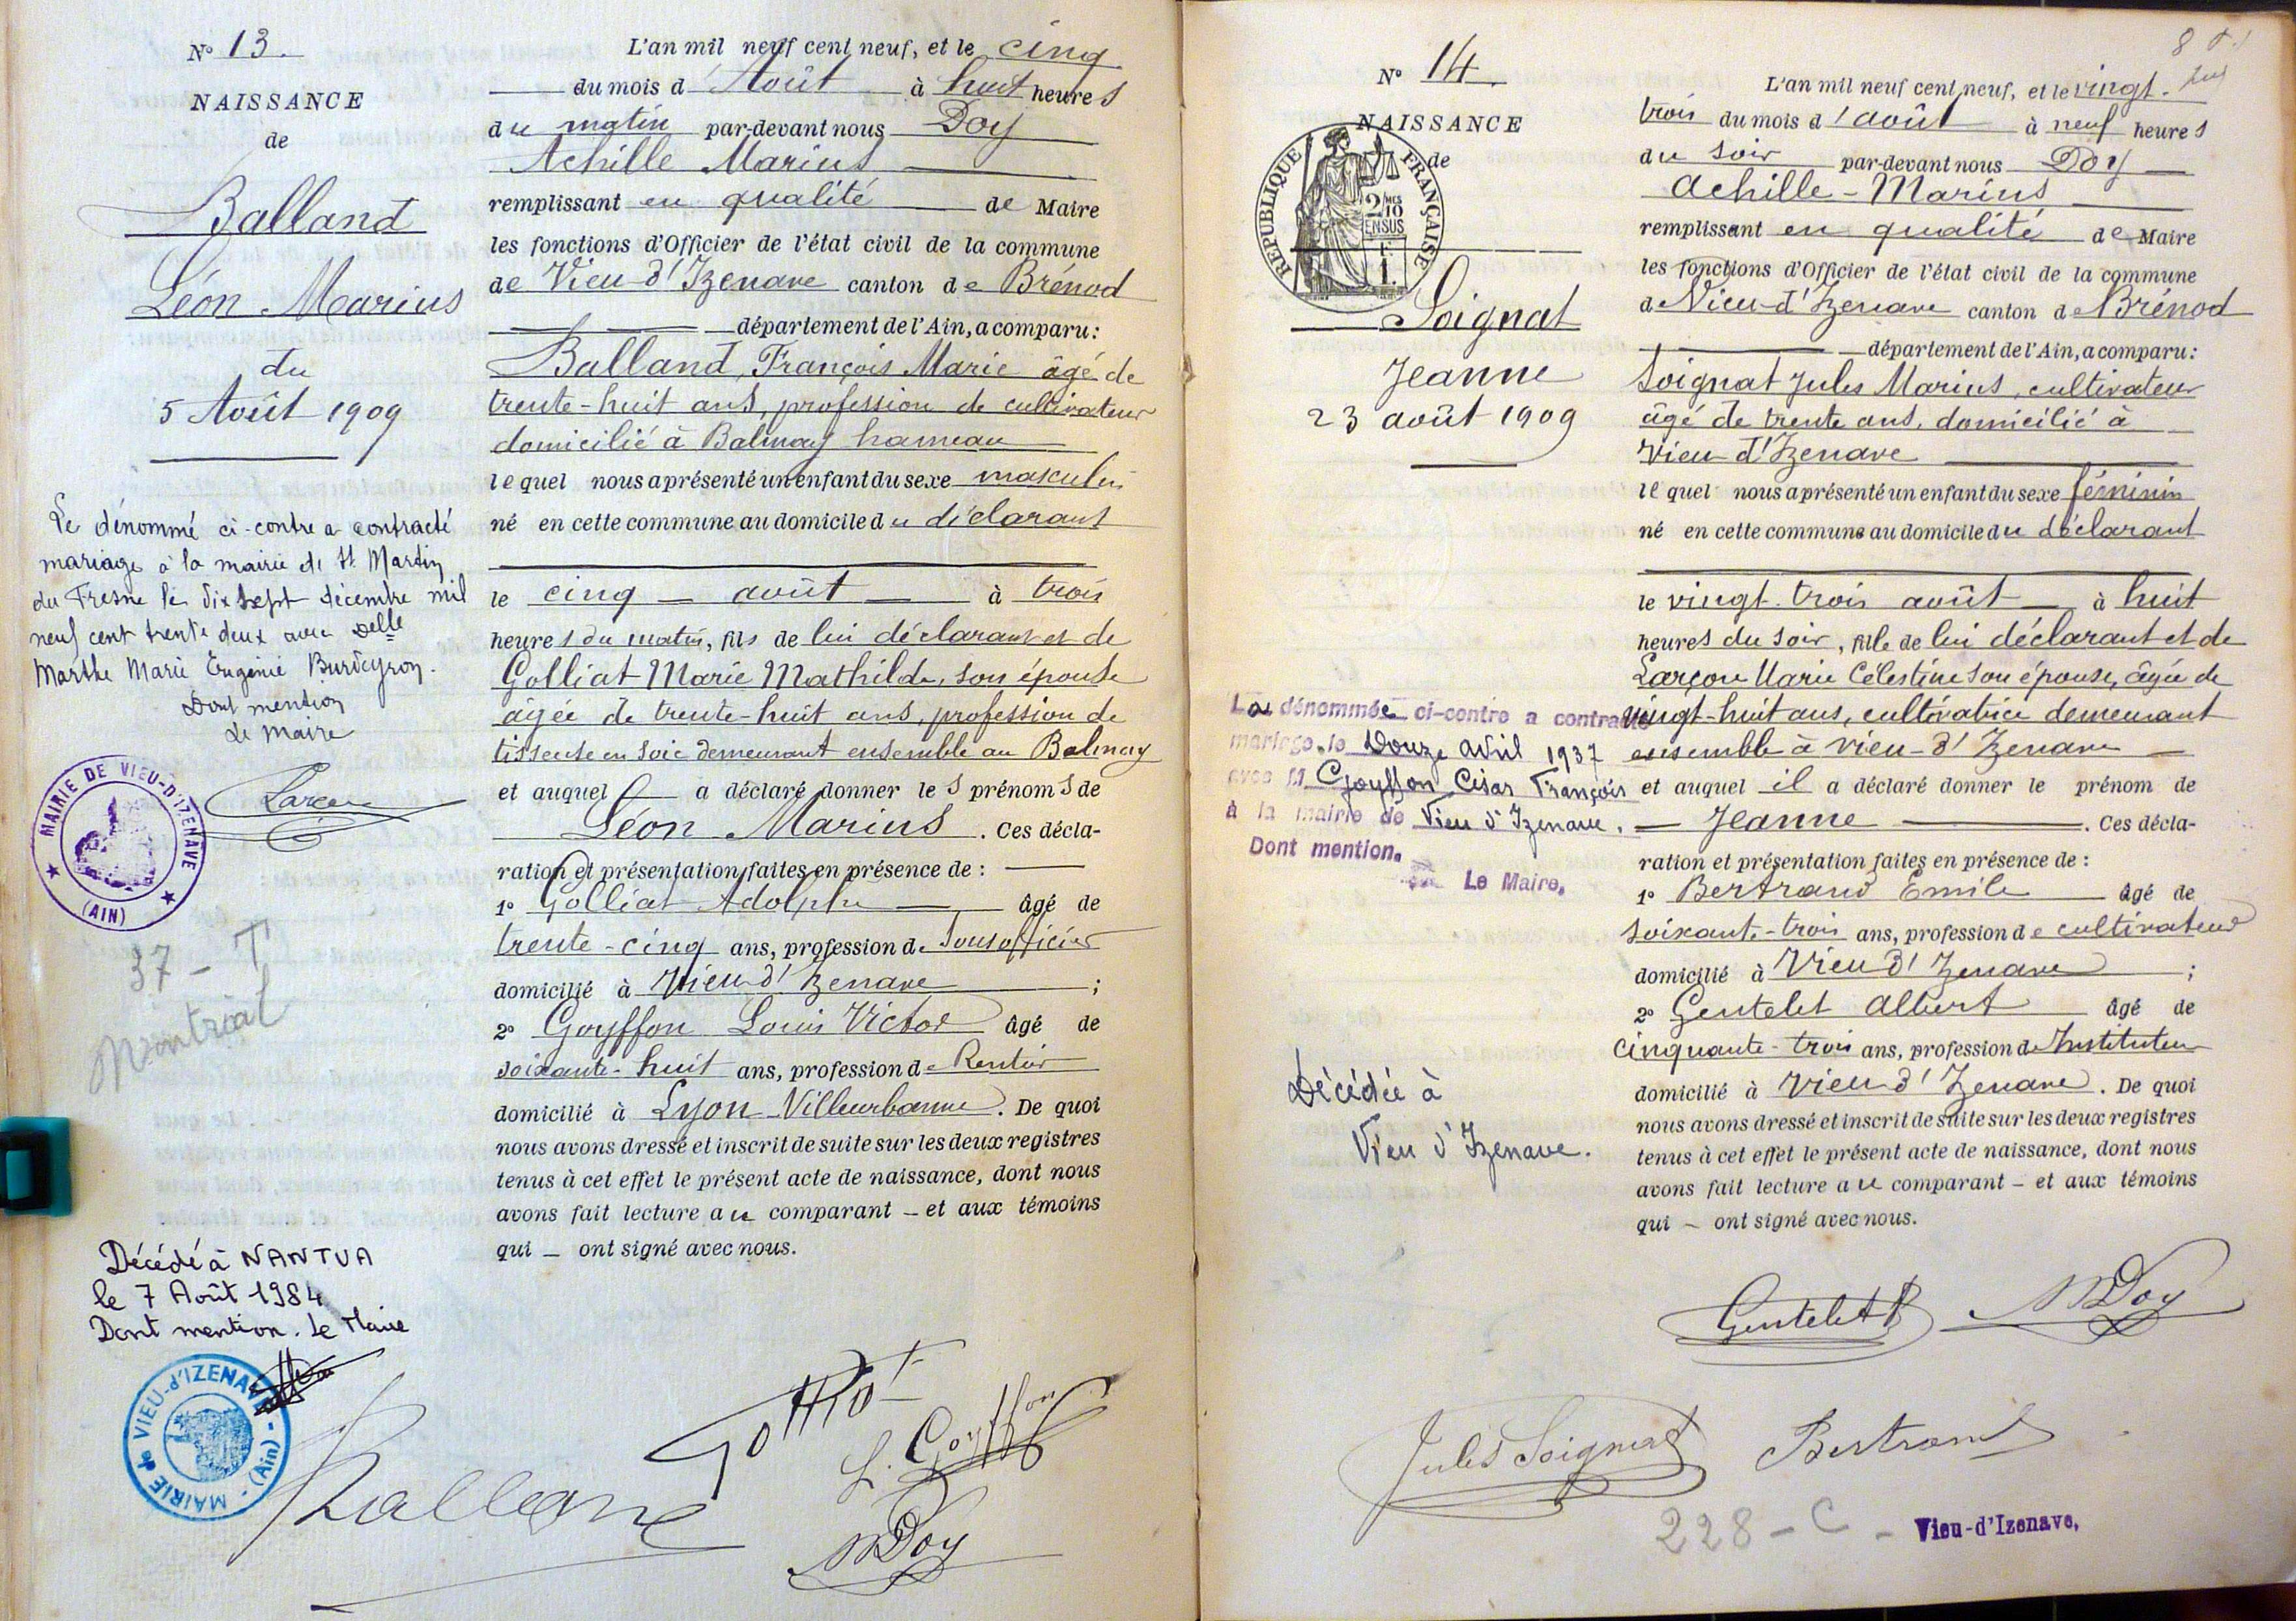 N° 13.
NAISSANCE
de
Balland
Léon Marius
du
5 Août 1909
Le dénommé ci-contre a contracté
mariage à la mairie de St Martin
du Fresne le dix sept décembre mil
neuf cent trente deux avec Delle
Marthe Marie Eugénie Burdeyron.
Dont mention
Le Maire
MAIRIE DE VIEU-D'IZENAVE
(AIN)
37 - T
Montréal
Décédé à NANTUA
le 7 Août 1984
Dont mention. Le Maire
MAIRIE de VIEU-d'IZENAVE - (Ain) -
L'an mil neuf cent neuf, et le cinq
du mois d'Août à huit heures
du matin par-devant nous Doy
Achille Marius
remplissant en qualité de Maire
les fonctions d'Officier de l'état civil de la commune
de Vieu-d'Izenave canton de Brénod
département de l'Ain, a comparu :
Balland, François Marie âgé de
trente-huit ans, profession de cultivateur
domicilié à Balmay hameau
lequel nous a présenté un enfant du sexe masculin
né en cette commune au domicile du déclarant
le cinq août à trois
heures du matin, fils de lui déclarant et de
Golliat Marie Mathilde, son épouse
âgée de trente-huit ans, profession de
tisseuse en soie demeurant ensemble au Balmay
et auquel a déclaré donner les prénoms de
Léon Marius. Ces décla-
ration et présentation faites en présence de :
1° Golliat Adolphe âgé de
trente-cinq ans, profession de Sous officier
domicilié à Vieu d'Izenave ;
2° Goyffon Louis Victor âgé de
soixante-huit ans, profession de Rentier
domicilié à Lyon-Villeurbanne. De quoi
nous avons dressé et inscrit de suite sur les deux registres
tenus à cet effet le présent acte de naissance, dont nous
avons fait lecture au comparant – et aux témoins
qui – ont signé avec nous.
L. Goyffon
Balland
M Doy
N° 14.
NAISSANCE
de
REPUBLIQUE FRANÇAISE
2/10 MES
EN SUS
Soignat
Jeanne
23 août 1909
La dénommée ci-contre a contracté
mariage le Douze Avril 1937
avec M Goyffon César François
à la mairie de Vieu d'Izenave.
Dont mention.
Le Maire,
Décédée à
Vieu d'Izenave.
8
L'an mil neuf cent neuf, et le vingt-
trois du mois d'août à neuf heures
du soir par-devant nous Doy
Achille-Marius
remplissant en qualité de Maire
les fonctions d'Officier de l'état civil de la commune
de Vieu-d'Izenave canton de Brénod
département de l'Ain, a comparu :
Soignat Jules Marius, cultivateur
âgé de trente ans, domicilié à
Vieu-d'Izenave
lequel nous a présenté un enfant du sexe féminin
né en cette commune au domicile du déclarant
le vingt-trois août à huit
heures du soir, fille de lui déclarant et de
Larçon Marie Célestine son épouse, âgée de
vingt-huit ans, cultivatrice demeurant
ensemble à Vieu-d'Izenave
et auquel il a déclaré donner le prénom de
Jeanne. Ces décla-
ration et présentation faites en présence de :
1° Bertrand Emile âgé de
soixante-trois ans, profession de cultivateur
domicilié à Vieu d'Izenave ;
2° Gentelet Albert âgé de
cinquante-trois ans, profession de Instituteur
domicilié à Vieu d'Izenave. De quoi
nous avons dressé et inscrit de suite sur les deux registres
tenus à cet effet le présent acte de naissance, dont nous
avons fait lecture au comparant – et aux témoins
qui – ont signé avec nous.
Gentelet
M Doy
Jules Soignat
Bertrand
228 - C -
Vieu-d'Izenave,